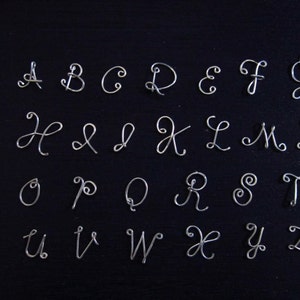 A B C D E F G
H I J K L M
O P Q R S T
U V W X Y Z